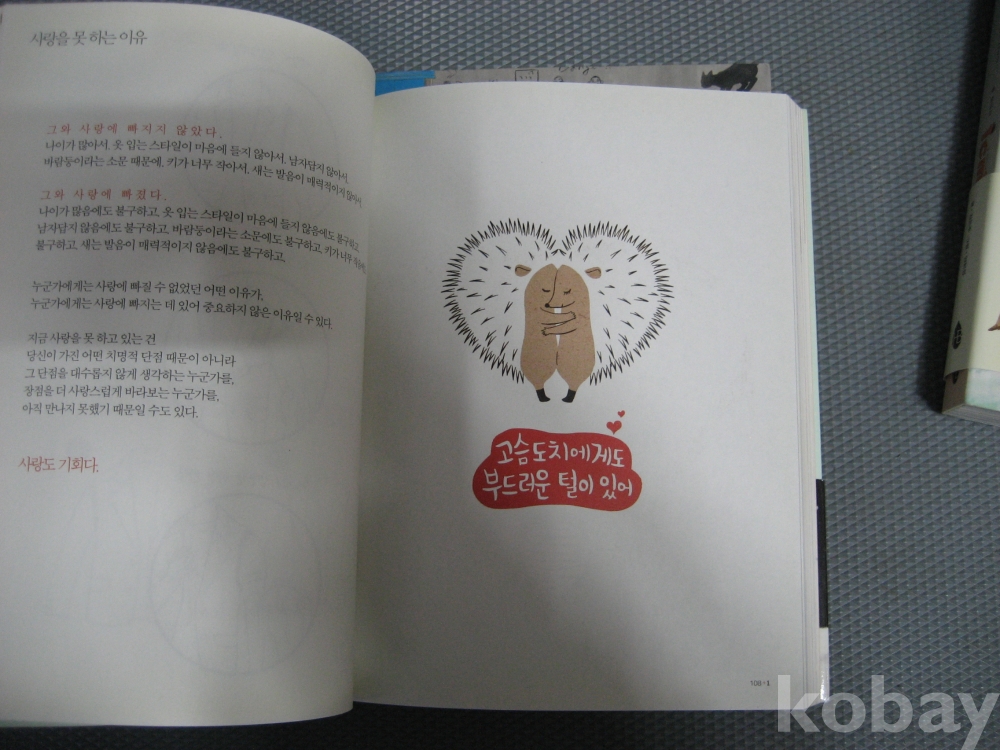 사랑을 못 하는 이유
그와 사랑에 빠지지 않았다.
나이가 많아서. 옷 입는 스타일이 마음에 들지 않아서. 남자답지 않아서.
바람둥이라는 소문 때문에. 키가 너무 작아서. 새는 발음이 매력적이지 않아서.
그와 사랑에 빠졌다.
나이가 많음에도 불구하고, 옷 입는 스타일이 마음에 들지 않음에도 불구하고,
남자답지 않음에도 불구하고, 바람둥이라는 소문에도 불구하고, 키가 너무
불구하고, 새는 발음이 매력적이지 않음에도 불구하고,
누군가에게는 사랑에 빠질 수 없었던 어떤 이유가,
누군가에게는 사랑에 빠지는 데 있어 중요하지 않은 이유일 수 있다.
지금 사랑을 못 하고 있는 건
당신이 가진 어떤 치명적 단점 때문이 아니라
그 단점을 대수롭지 않게 생각하는 누군가를,
장점을 더 사랑스럽게 바라보는 누군가를,
아직 만나지 못했기 때문일 수도 있다.
사랑도 기회다.
고슴도치에게도
부드러운 털이 있어
kobay